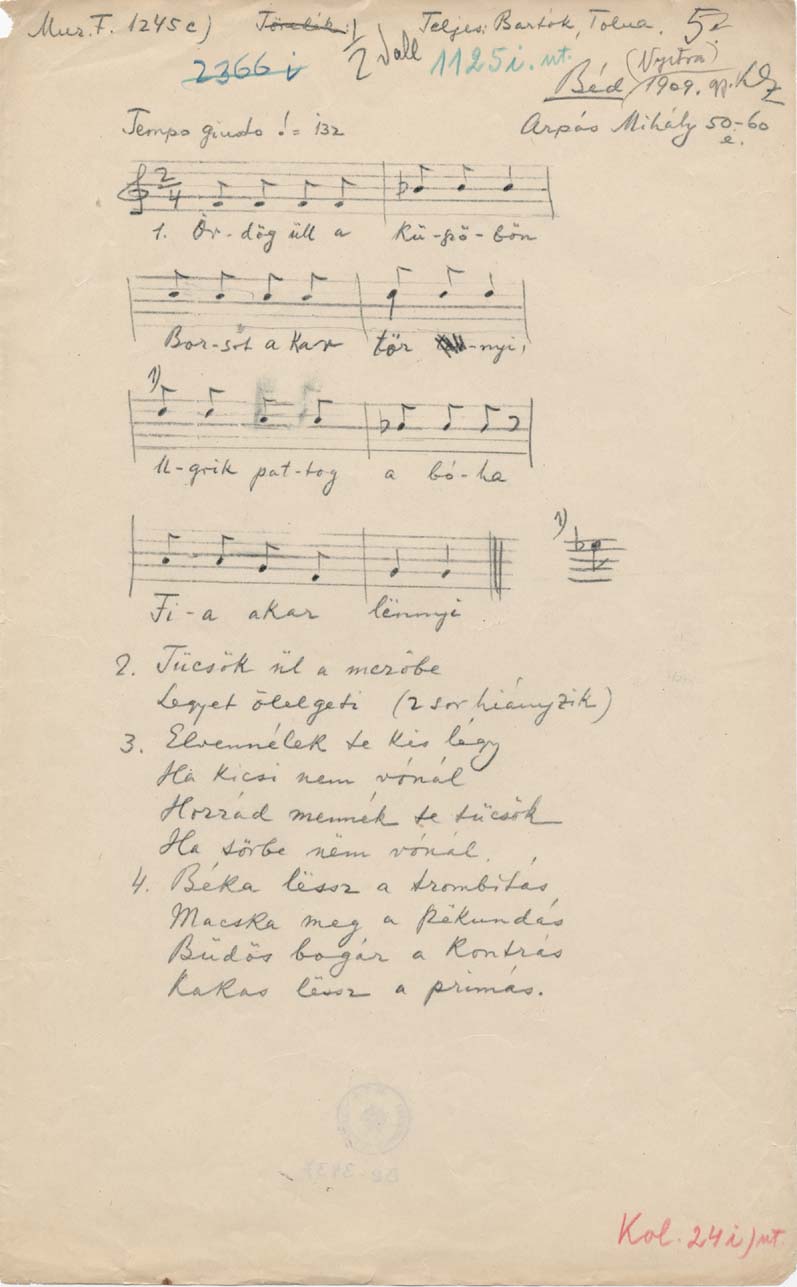 Mus. F. 1245 c) Töredék 1/2 Vall Teljes: Bartók, Tolna. 52
2366 i 1125 i. nt. (Nyitra)
Béd 1909. gy. KZ
Tempo giusto = 132 Arpás Mihály 50-60 é.
2/4
1. Ör-dög üll a kü-szö-bön
Bor-sót a kar tör -nyi,
1)
U-grik pat-tog a bó-ha
1)
Fi-a akar lënnyi
2. Tücsök ül a mezőbe
Legyet ölelgeti (2 sor hiányzik)
3. Elvennélek te kis légy
Ha kicsi nem vónál
Hozzád mennék te tücsök
Ha törbe nëm vónál.
4. Béka lëssz a trombitás,
Macska meg a
Büdös bogár a kontrás
Kakas lëssz a prímás.
Kol. 24 i) nt.